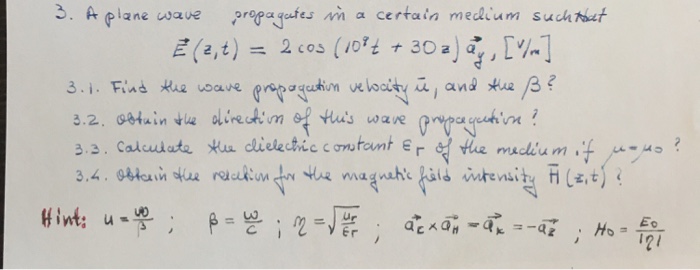 3. A plane wave propagates in a certain medium such that
E⃗(z,t) = 2 cos (10⁸t + 30z) a⃗y, [V/m]
3.1. Find the wave propagation velocity ū, and the β?
3.2. Obtain the direction of this wave propagation?
3.3. Calculate the dielectric constant εr of the medium if μ=μ₀?
3.4. Obtain the relation for the magnetic field intensity H̄(z,t)?
Hint: u = ω/β ; β = ω/c ; η = √(μr/εr) ; a⃗E × a⃗H = a⃗k = -a⃗z ; H₀ = E₀/|η|